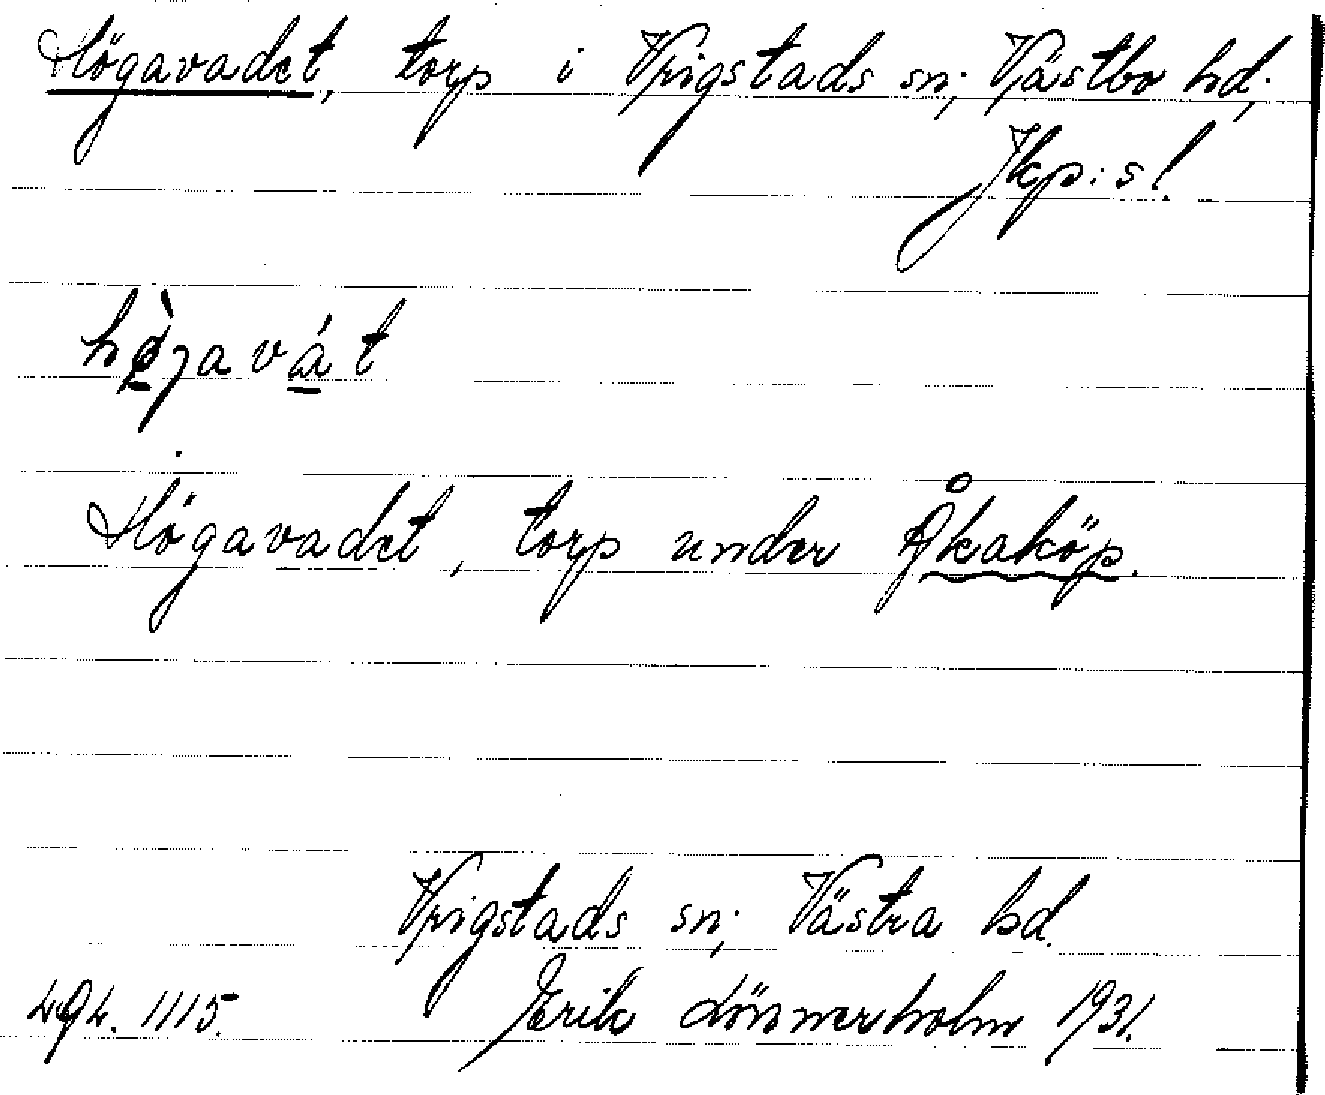 Högavadet, torp i Vrigstads sn; Västbo hd;
Jkp:s l.
hø̀ȷavát
Högavadet, torp under Åkaköp.
Vrigstads sn; Västra hd.
1115. Erik Lönnerholm 1931.